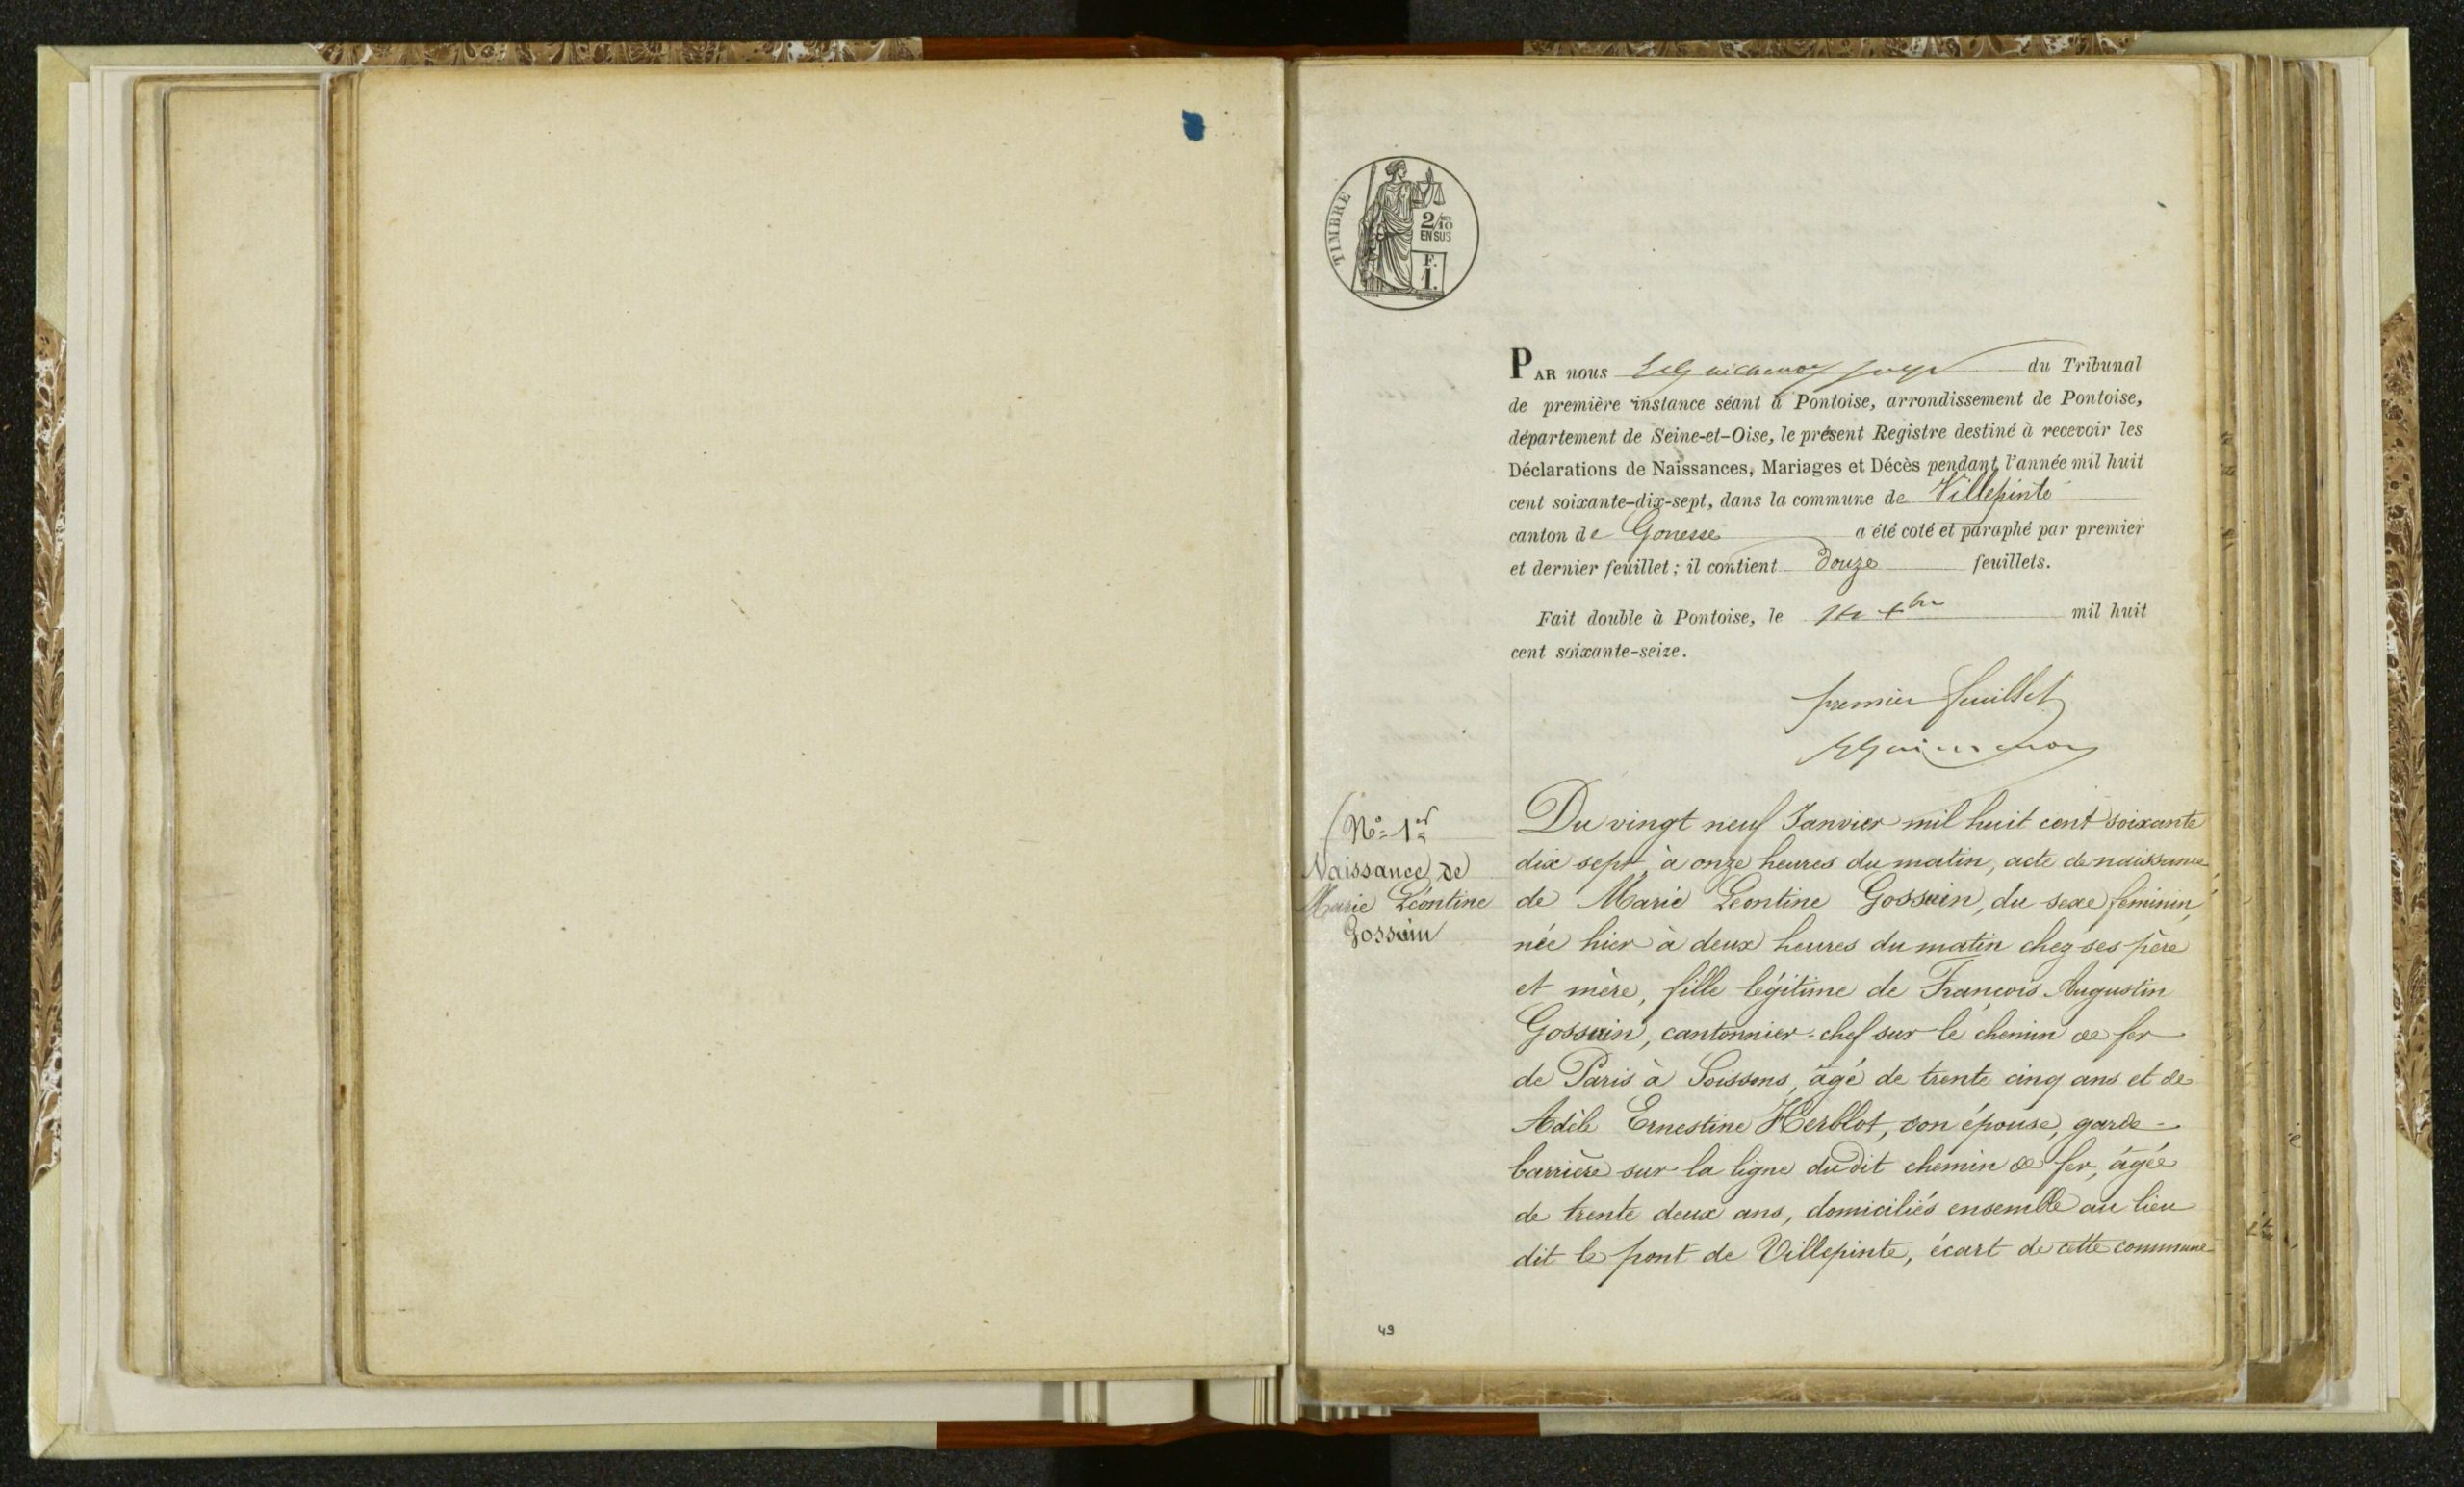 TIMBRE
2/10
EN SUS
F.
1.
PAR nous juge du Tribunal
de première instance séant à Pontoise, arrondissement de Pontoise,
département de Seine-et-Oise, le présent Registre destiné à recevoir les
Déclarations de Naissances, Mariages et Décès pendant l'année mil huit
cent soixante-dix-sept, dans la commune de Villepinte
canton de Gonesse a été coté et paraphé par premier
et dernier feuillet ; il contient Douze feuillets.
Fait double à Pontoise, le mil huit
cent soixante-seize.
premier feuillet
N° 1er
Naissance de
Marie Léontine
Gossuin
Du vingt neuf Janvier mil huit cent soixante
dix sept, à onze heures du matin, acte de naissance
de Marie Léontine Gossuin, du sexe féminin,
née hier à deux heures du matin chez ses père
et mère, fille légitime de François Augustin
Gossuin, cantonnier-chef sur le chemin de fer
de Paris à Soissons, âgé de trente cinq ans et de
Adèle Ernestine Herblot, son épouse, garde-
barrière sur la ligne dudit chemin de fer, âgée
de trente deux ans, domiciliés ensemble au lieu
dit le pont de Villepinte, écart de cette commune
49